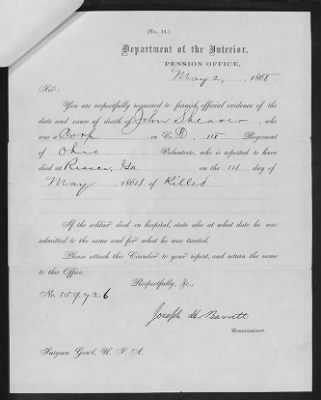 (No. 11.)
Department of the Interior,
PENSION OFFICE,
May 2, 1868
Sir:
You are respectfully requested to furnish official evidence of the
date and cause of death of John Shearer, who
was a Corp in Co. D, 115 Regiment
of Ohio Volunteers, who is reported to have
died at Ga on the day of
May, 1864, of Killed
If the soldier died in hospital, state also at what date he was
admitted to the same and for what he was treated.
Please attach this Circular to your report, and return the same
to this Office.
Respectfully, &c.,
No. 159.726
Joseph H. Barrett
Commissioner.
Surgeon Gen'l, U. S. A.